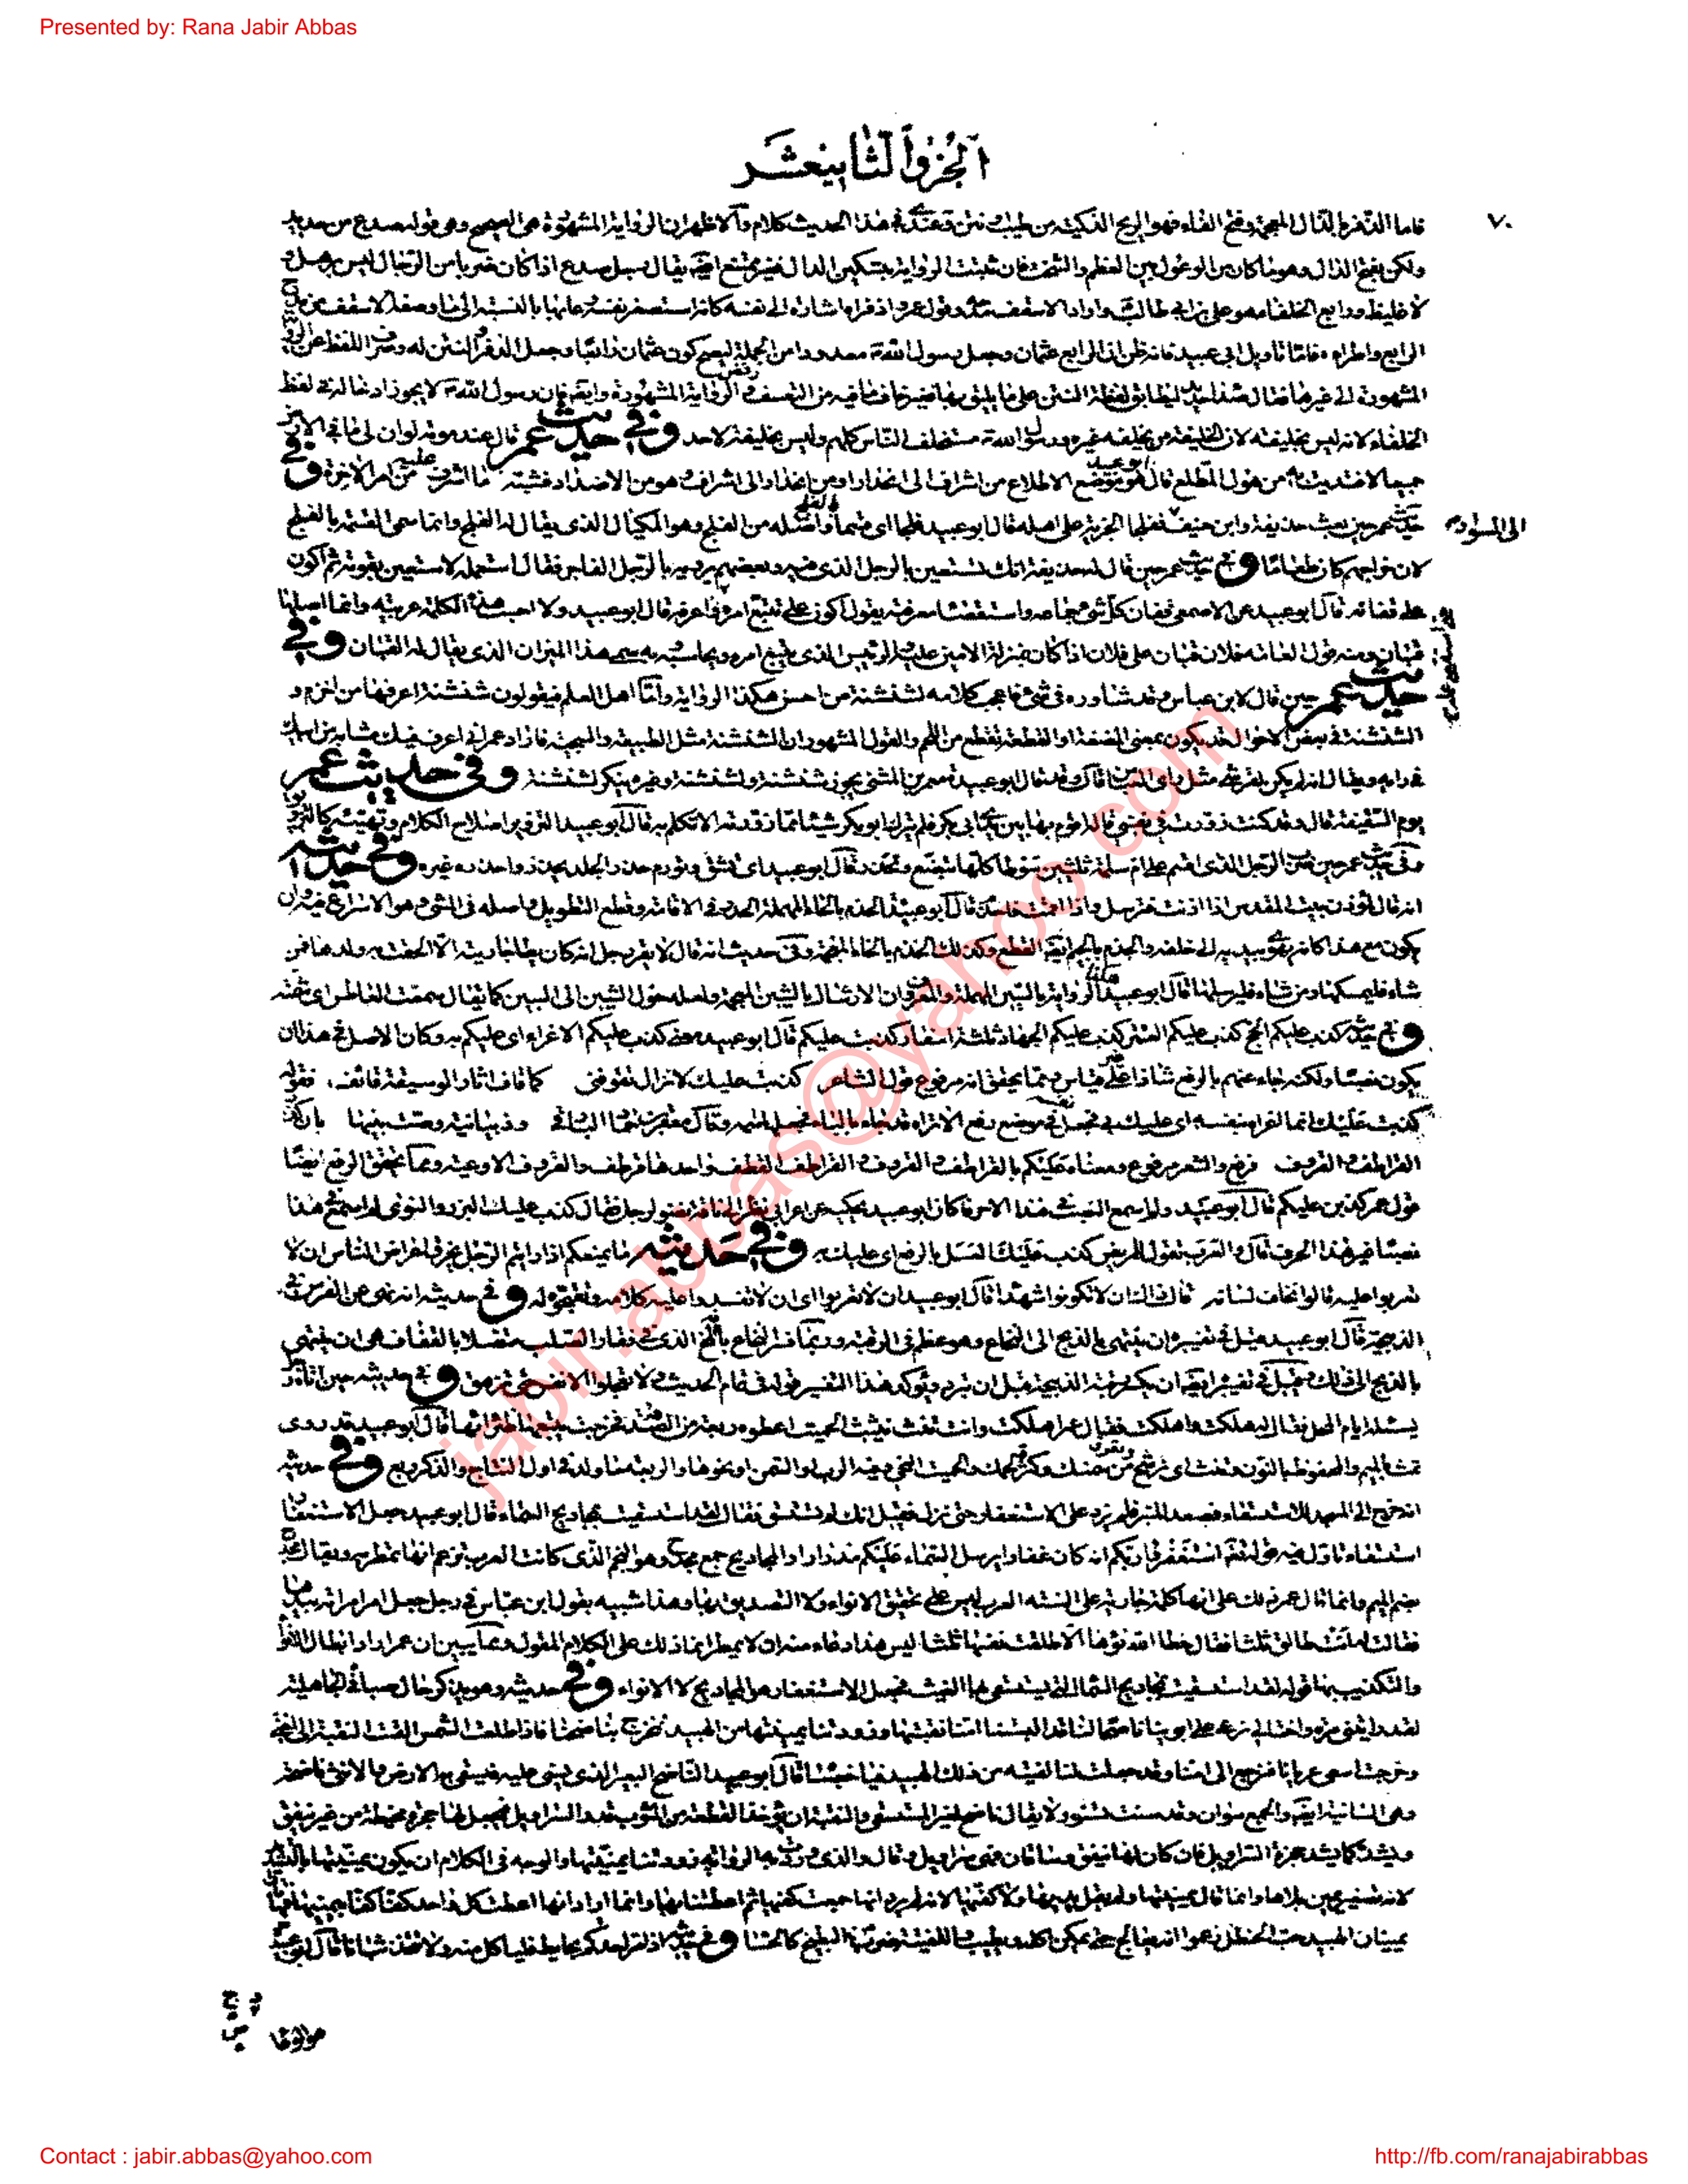 Presented by: Rana Jabir Abbas
الجزو الثاني عشر
٧٠
فاما الذفر بالذال المعجمة وفتح الفاء فهو الريح الذكية من طيب او نتن وعندي في هذا الحديث كلام والاظهر ان الرواية المشهورة هي الصحيح وهي قوله صدع من حديد
ولكن بفتح الدال وهو ما كان من الوعول بين العظيم والشخت فان ثبتت الرواية بتسكين الدال فغير ممتنع ايضا يقال رجل صدع اذا كان ضربا من الرجال ليس برهل ولا
لا غليظ ورابع الخلفاء هو علي بن ابي طالب واراد الاسقف مدحه وقول عمر واذفراه اشارة الى نفسه كانه استصغر نفسه وعابها بالنسبة الى ما وصفه الاسقف من مدح
الرابع واطرائه فاما تاويل ابي عبيد فانه ظن ان الرابع عثمان وجعل رسول الله معدودا من الجملة ليصح كون عثمان رابعا وجعل الذفر النتن له وصرف اللفظ عن الرواية
المشهورة الى غيرها فقال صدا حديد ليطابق لفظة النتن على ما يليق بها فغير خاف ما فيه من التعسف ورفض الرواية المشهورة وايضا فان رسول الله لا يجوز ادخاله في لفظ
الخلفاء لانه ليس بخليفة لان الخليفة من يخلف غيره ورسول الله مستخلف الناس كلهم وليس بخليفة لاحد وفي حديث عمر قال عند موته لو ان لي ما في الارض
جميعا لافتديت به من هول المطلع قال ابو عبيد هو موضع الاطلاع من اشراف الى انحدار او من انحدار الى اشراف وهو من الاضداد فشبه ما اشرف عليه من امر الاخرة وفي
حديث عمر حين بعث حذيفة وابن حنيف ففلجا الجزية على اهله قال ابو عبيد فلجا اي قسما واصله من الفلج وهو المكيال الذي يقال له الفالج وانما سمي القسمة بالفلج
الى السواد
لان خراجهم كان طعاما وفي حديث عمر حين قال له حذيفة انك تستعين بالرجل الذي فيه وبعضهم يرويه بالرجل الفاجر فقال استعمله لاستعين بقوته ثم اكون
على قفانه قال ابو عبيد عن الاصمعي قفان كل شيء جماعه واستقصاء معرفته يقول اكون على تتبع امره فاعرفه قال ابو عبيد ولا احسب هذه الكلمة عربية وانما اصلها
قبان ومنه قول العامة فلان قبان على فلان اذا كان بمنزلة الامين عليه والرئيس الذي يتبع امره ويحاسبه وبه سمي هذا الميزان الذي يقال له القبان وفي
حديث عمر حين قال لابن عباس وقد شاوره في شيء فاعجبه كلامه نشنشة من اخشن هكذا الرواية واما اهل العلم فيقولون شنشنة اعرفها من اخزم و
الشنشنة في بعض الاحوال قد يكون بمعنى المضغة او القطعة تقطع من اللحم والقول المشهور ان الشنشنة مثل الطبيعة والسجية فاراد عمر اني اعرف فيك مشابه من ابيك
في رايه ويقال انه لم يكن لقرشي مثل راي العباس قال وقد قال ابو عبيدة معمر بن المثنى يجوز شنشنة ونشنشة وغيره ينكر نشنشة وفي حديث عمر
يوم السقيفة قال وقد كنت زورت في نفسي مقالة اقوم بها بين يدي ابي بكر فلم يترك ابو بكر شيئا مما زورته الا تكلم به قال ابو عبيد التزوير اصلاح الكلام وتهيئته كالتزويق
وفي حديث عمر حين ضرب الرجل الذي اقسم على ام سلمة ثلاثين سوطا كلها تبضع وتحدر قال ابو عبيد اي تشق وتورم حدر الجلد يحدر واحدره غيره وفي حديثه
انه قال لمؤذن بيت المقدس اذا اذنت فترسل واذا اقمت فاحذم قال ابو عبيد الحذم بالحاء المهملة الحدر في الاقامة وقطع التطويل واصله في المشي وهو الاسراع فيه وان
يكون مع هذا كانه يهوي بيديه الى خلفه والجذم بالجيم ايضا القطع وكذلك الخذم بالخاء المعجمة وفي حديثه انه قال لا يقر رجل انه كان يطا جاريته الا الحقت به ولدها فمن
شاء فليمسكها ومن شاء فليرسلها قال ابو عبيد هكذا الرواية بالسين المهملة والمعروف ان الارشال بالشين المعجمة ولعله حول الشين الى السين كما يقال سمت العاطس اي شمته
وفي حديثه كذب عليكم الحج كذب عليكم العمرة كذب عليكم الجهاد ثلاثة اسفار كذبت عليكم قال ابو عبيد معنى كذب عليكم الاغراء اي عليكم به وكان الاصل في هذا ان
يكون نصبا ولكنه جاء عنهم بالرفع شاذا على غير قياس ومما يحقق انه مرفوع قول الشاعر كذبت عليك لا تزال تقوفني كما قاف اثار الوسيقة قائف، فقوله
كذبت عليك انما اغراه بنفسه اي عليك بي فجعل نفسه في موضع رفع الا تراه قد جاء بالتاء فجعلها اسمه وقال معقر بن حمار البارقي وذبيانية وصت بنيها بان كذب
القراطف والقروف فرفع والشعر مرفوع ومعناه عليكم بالقراطف والقروف والقراطف القطف واحدها قرطف والقروف الاوعية ومما يحقق الرفع ايضا
قول عمر كذبن عليكم قال ابو عبيد ولم اسمع النصب في هذا الا حرفا كان ابو عبيدة يحكيه عن اعرابي نظر الى ناقة نضو لرجل فقال كذب عليك البزر والنوى لم اسمع في هذا
نصبا غير هذا الحرف قال والعرب تقول للمريض كذب عليك العسل بالرفع اي عليك به وفي حديثه ما يمنعكم اذا رايتم الرجل يخرق اعراض الناس ان لا
تعربوا عليه قالوا نخاف لسانه قال ذلك ان لا تكونوا شهداء قال ابو عبيد ان لا تعربوا اي ان لا تفسدوا عليه كلامه وتقبحوه له وفي حديثه انه نهى عن الفرس في
الذبيحة قال ابو عبيد قيل في تفسيره ان ينتهي بالذبح الى النخاع وهو عظم في الرقبة وربما فسر النخاع بالمخ الذي في فقار الصلب متصلا بالقفا فنهى ان ينتهي
بالذبح الى ذلك وقيل في تفسيره ايضا ان يكسر رقبة الذبيحة قبل ان تبرد ويؤكد هذا التفسير قوله في تمام الحديث ولا تعجلوا الانفس حتى تزهق وفي حديثه حين اتاه رجل
يسئله ايام المحل فقال له هلكت واهلكت فقال عمر اهلكت وانت تنث نثيث الحميت اعطوه ربعة من الصدقة فخرجت يتبعها ظئراها قال ابو عبيد قد روى
تمث بالميم والمحفوظ بالنون وتنث اي ترشح وتعرق من سمنك وكثرة لحمك والحميت النحي وفيه الرب او السمن او نحوهما والربعة ما ولد في اول النتاج والذكر ربع وفي حديثه
انه خرج الى المسجد للاستسقاء فصعد المنبر فلم يزد على الاستغفار حتى نزل فقيل انك لم تستسق فقال لقد استسقيت بمجاديح السماء قال ابو عبيد جعل الاستغفار
استسقاء تاول فيه قوله تعالى استغفروا ربكم انه كان غفارا يرسل السماء عليكم مدرارا والمجاديح جمع مجدح وهو النجم الذي كانت العرب تزعم انها تمطر به ويقال مجدح
بضم الميم وانما قال عمر ذلك على انها كلمة جارية على السنة العرب ليس على تحقيق الانواء ولا التصديق بها وهذا شبيه بقول ابن عباس في رجل جعل امر امراته بيدها
فقالت له انت طالق ثلثا فقال خطا الله نوءها الا طلقت نفسها ثلثا ليس هذا دعاء منه ان لا يمطر انما ذلك على الكلام المقول ومما يبين ان عمر اراد ابطال الانواء
والتكذيب بها قوله لقد استسقيت بمجاديح السماء التي يستسقى بها الغيث فجعل الاستغفار هو المجاديح لا الانواء وفي حديثه وهو يذكر حال صباه في الجاهلية
لقد رايتني مرة واختا لي نرعى على ابوينا ناضحا لنا قد البستنا امنا نقبتها وزودتنا يمينتيها من الهبيد فنخرج بناضحنا فاذا طلعت الشمس القيت النقبة الى اختي
وخرجت اسعى عريانا فنرجع الى امنا وقد جعلت لنا لفيتة من ذلك الهبيد فيا خصبنا قال ابو عبيد الناضح البعير الذي يسنى عليه فيسقى به الارض والانثى ناضحة
وهي السانية ايضا والجمع سوان وقد سنت تسنو ولا يقال ناضح لغير المستسقي والنقبة ان تؤخذ القطعة من الثوب قدر السراويل فيجعل لها حجزة مخيطة من غير نيفق
ويشد كما يشد حجزة السراويل فان كان لها نيفق وساقان فهي سراويل وقال والذي وردت به الرواية زودتنا يمينتيها والوجه في الكلام ان يكون يمينيها بالتشديد
لانه تصغير يمين بلا هاء وانما قال يمينيها ولم يقل يديها ولا كفيها لانه لم يرد انها جمعت كفيها ثم اعطتنا بهما وانما اراد انها اعطت كل واحد كفا كفا بيمينها فهاتان
يمينان الهبيد حب الحنظل زعموا انه يعالج حتى يمكن اكله ويطيب واللفيتة ضرب من الطبيخ كالحساء وفي حديثه اذا مر احدكم بحايط فلياكل منه ولا يتخذ ثبانا قال ابو عبيد
jabir.abbas@yahoo.com
Contact : jabir.abbas@yahoo.com
http://fb.com/ranajabirabbas